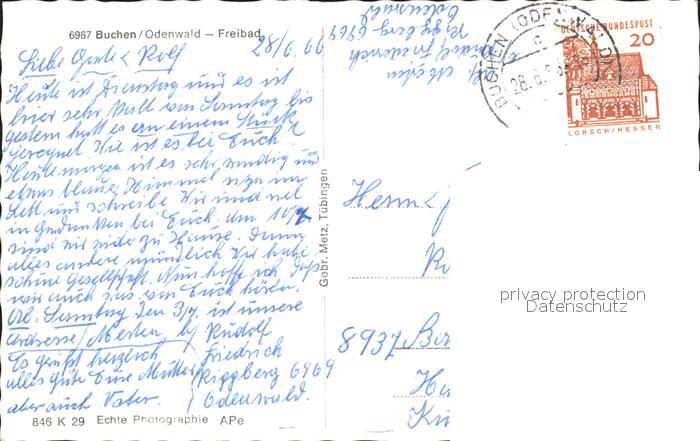 6967 Buchen/Odenwald – Freibad
28/6. 66
Liebe Grete & Rolf
Heute ist Dienstag und es ist
hier sehr kalt von Sonntag bis
gestern hatt es an einem Stück
geregnet. Wie ist es bei Euch?
Heute morgen ist es sehr windig und
etwas blauer Himmel
Bett und schreibe. Wir sind viel
in Gedanken bei Euch. am 10/7
sind wir wieder zu Hause. Dann
alles andere mündlich Wir haben
schöne Gesellschaft. Nun hoffe ich daß
wir auch was von Euch hören.
Ab. Samstag den 3/7. ist unsere
Adresse / Merten b/
Rudolf
Es grüßt herzlich
Friedrich
alles gute Eure Mutter
Rippberg 6969
aber auch Vater.
Odenwald.
846 K 29 Echte Photographie APe
Gebr. Metz, Tübingen
Rudolf Friedrich
Rippberg 6969
Odenwald
BUCHEN (ODENW)
c
28.6.
DEUTSCHE BUNDESPOST
20
LORSCH/HESSEN
Herrn &
8937
privacy protection
Datenschutz